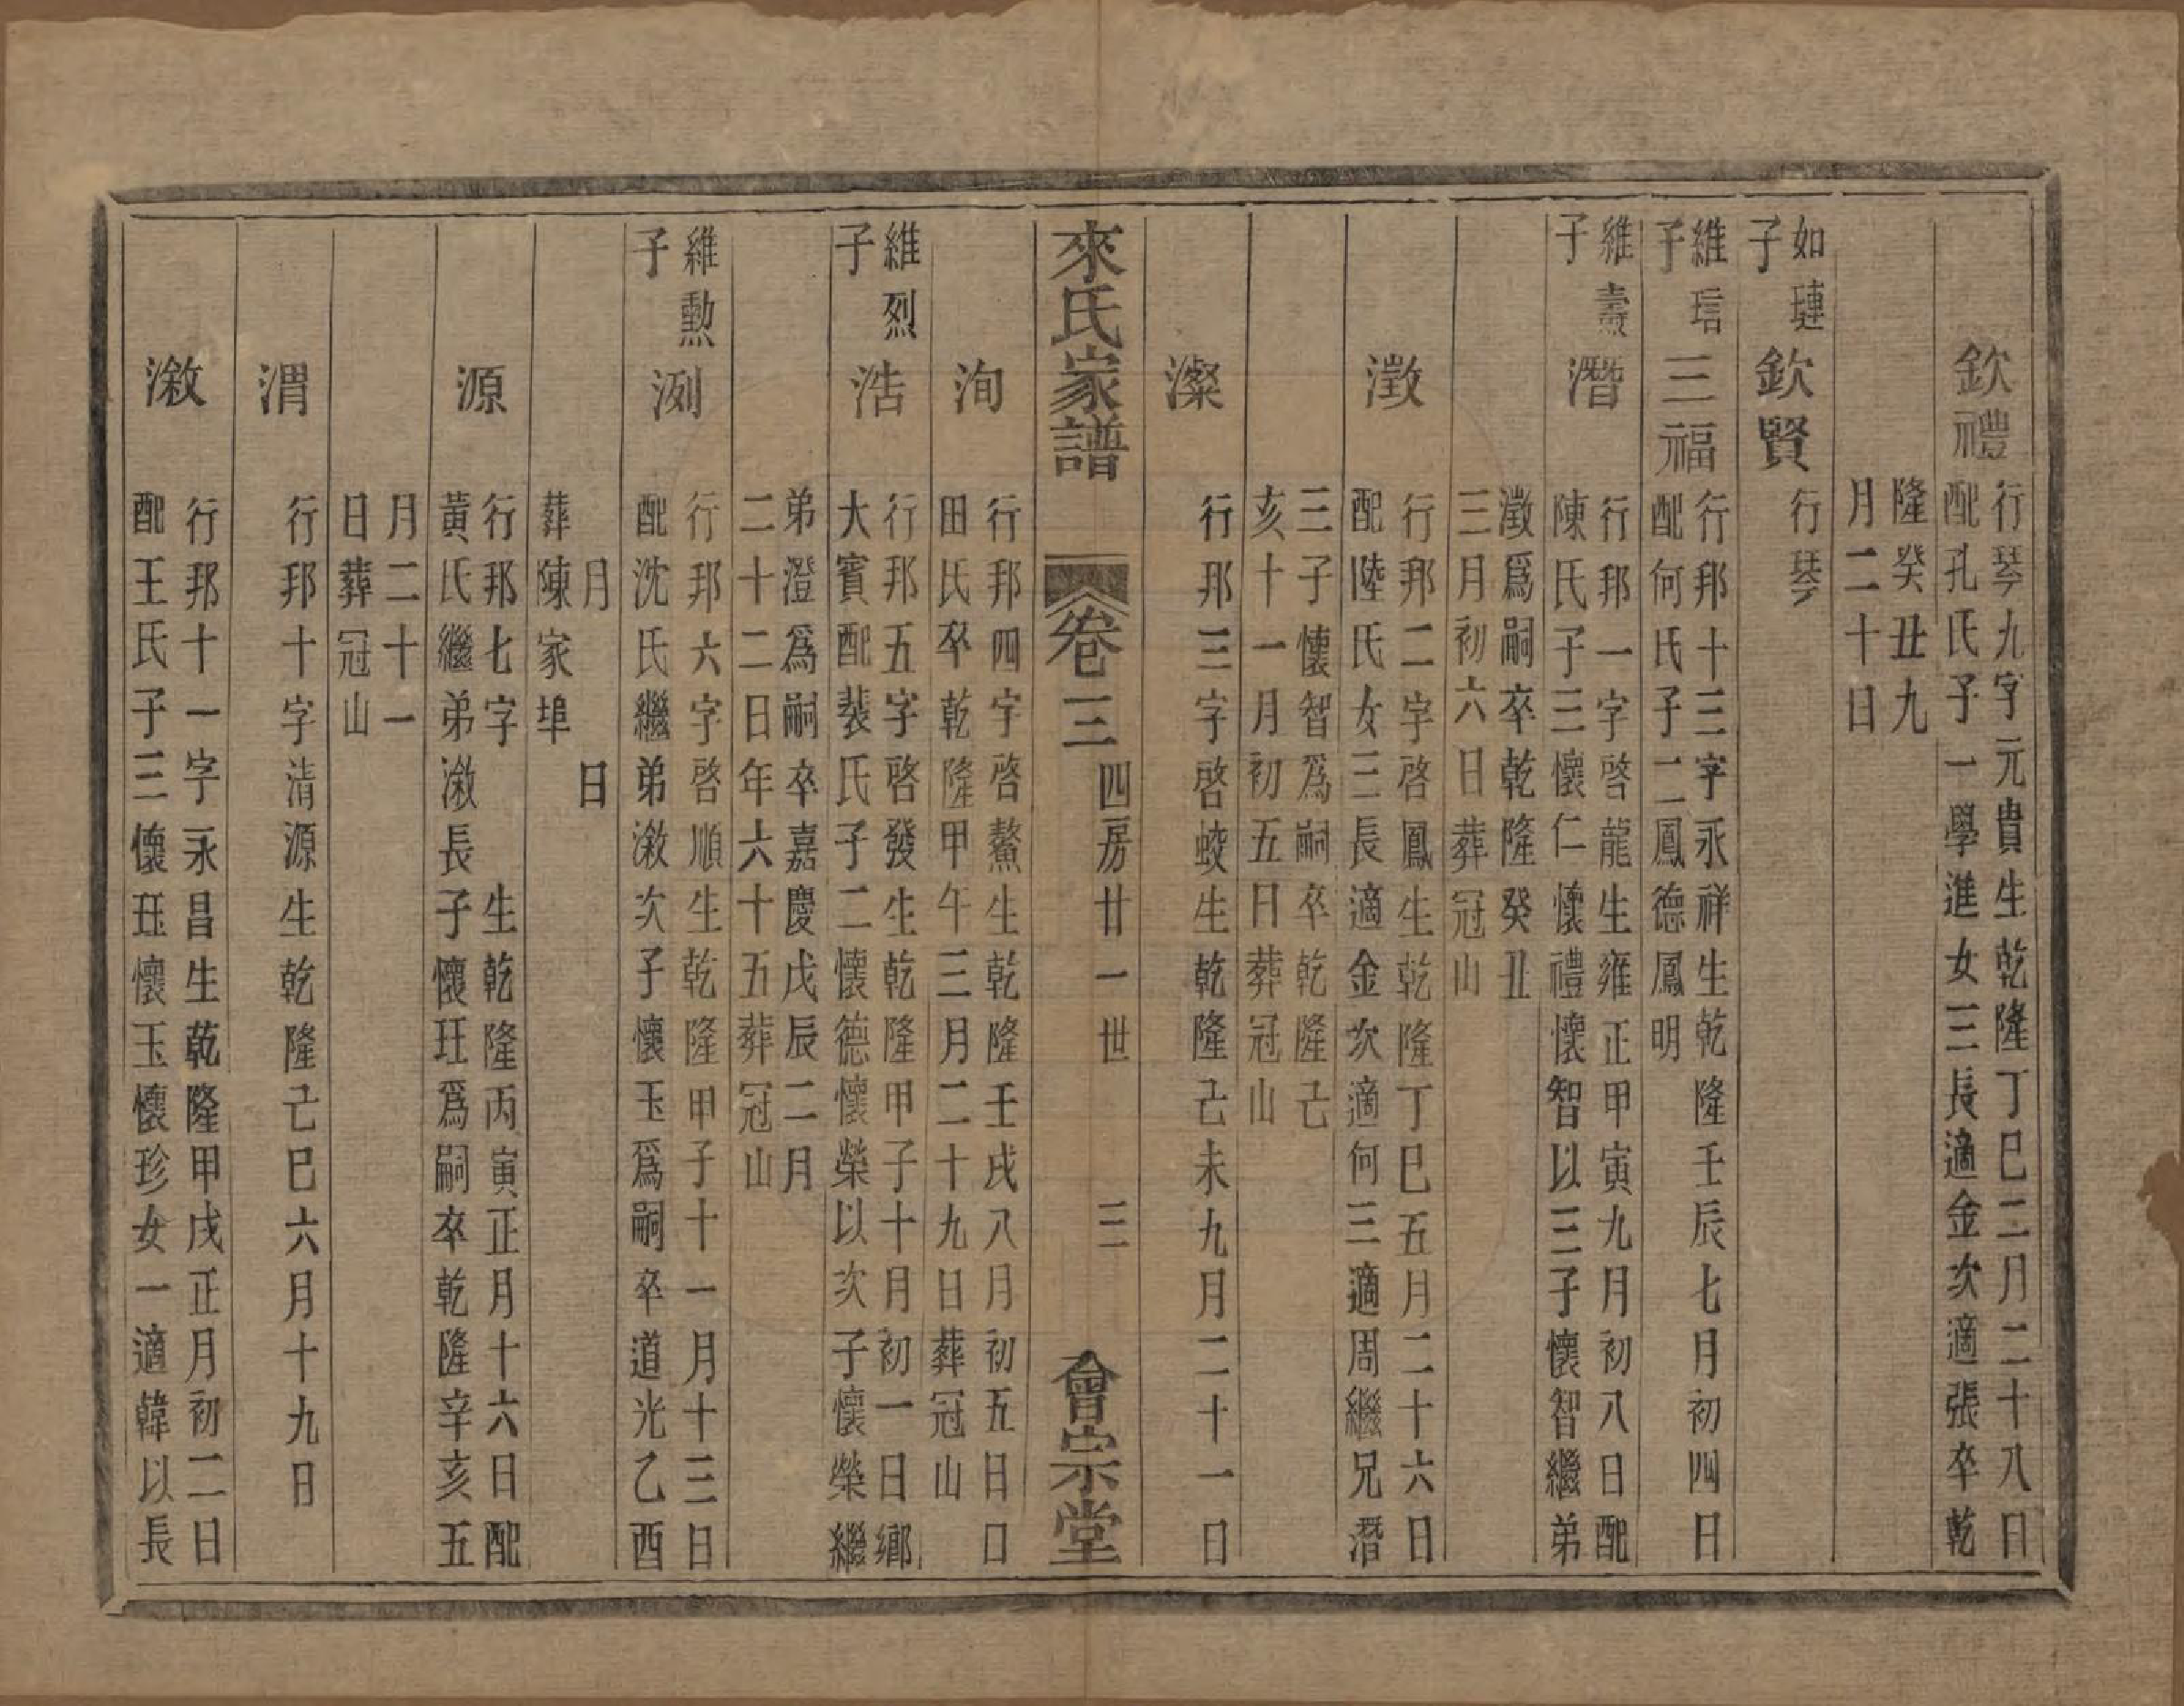 欽禮
行琴九字元貴生乾隆丁巳二月二十八日
配孔氏子一學進女三長適金次適張卒乾
隆癸丑九
月二十日
如璉
子
欽賢
行琴
維琂
子
三福
行邦十三字永祥生乾隆壬辰七月初四日
配何氏子二鳳德鳳明
維壽
子
潛
行邦一字啓龍生雍正甲寅九月初八日配
陳氏子三懷仁懷禮懷智以三子懷智繼弟
澂爲嗣卒乾隆癸丑
三月初六日葬冠山
澂
行邦二字啓鳳生乾隆丁巳五月二十六日
配陸氏女三長適金次適何三適周繼兄潛
三子懷智爲嗣卒乾隆己
亥十一月初五日葬冠山
澯
行邦三字啓蛟生乾隆己未九月二十一日
來氏家譜
卷三
四房廿一世
三
會宗堂
洵
行邦四字啓鰲生乾隆壬戌八月初五日口
田氏卒乾隆甲午三月二十九日葬冠山
維烈
子
浩
行邦五字啓發生乾隆甲子十月初一日鄉
大賓配裴氏子二懷德懷榮以次子懷榮繼
弟澄爲嗣卒嘉慶戊辰二月
二十二日年六十五葬冠山
維勲
子
洌
行邦六字啓順生乾隆甲子十一月十三日
配沈氏繼弟漵次子懷玉爲嗣卒道光乙酉
月 日
葬陳家埠
源
行邦七字 生乾隆丙寅正月十六日配
黃氏繼弟漵長子懷玨爲嗣卒乾隆辛亥五
月二十一
日葬冠山
渭
行邦十字清源生乾隆己巳六月十九日
漵
行邦十一字永昌生乾隆甲戌正月初二日
配王氏子三懷玨懷玉懷珍女一適韓以長